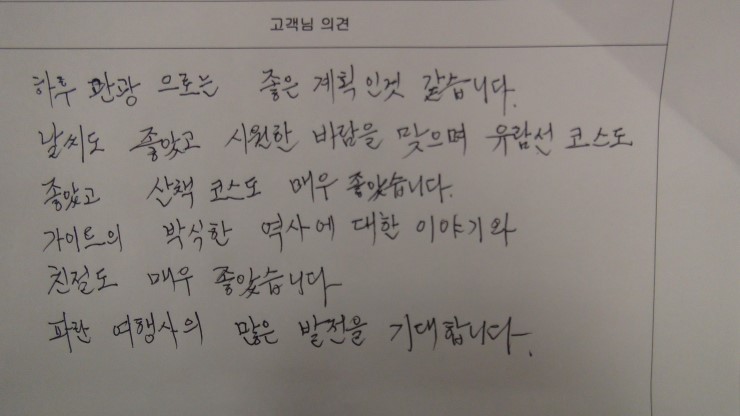 고객님 의견
하루 관광 으로는 좋은 계획인것 같습니다.
날씨도 좋았고 시원한 바람을 맞으며 유람선 코스도
좋았고 산책 코스도 매우 좋았습니다.
가이트의 박식한 역사에 대한 이야기와
친절도 매우 좋았습니다
파란 여행사의 많은 발전을 기대합니다.